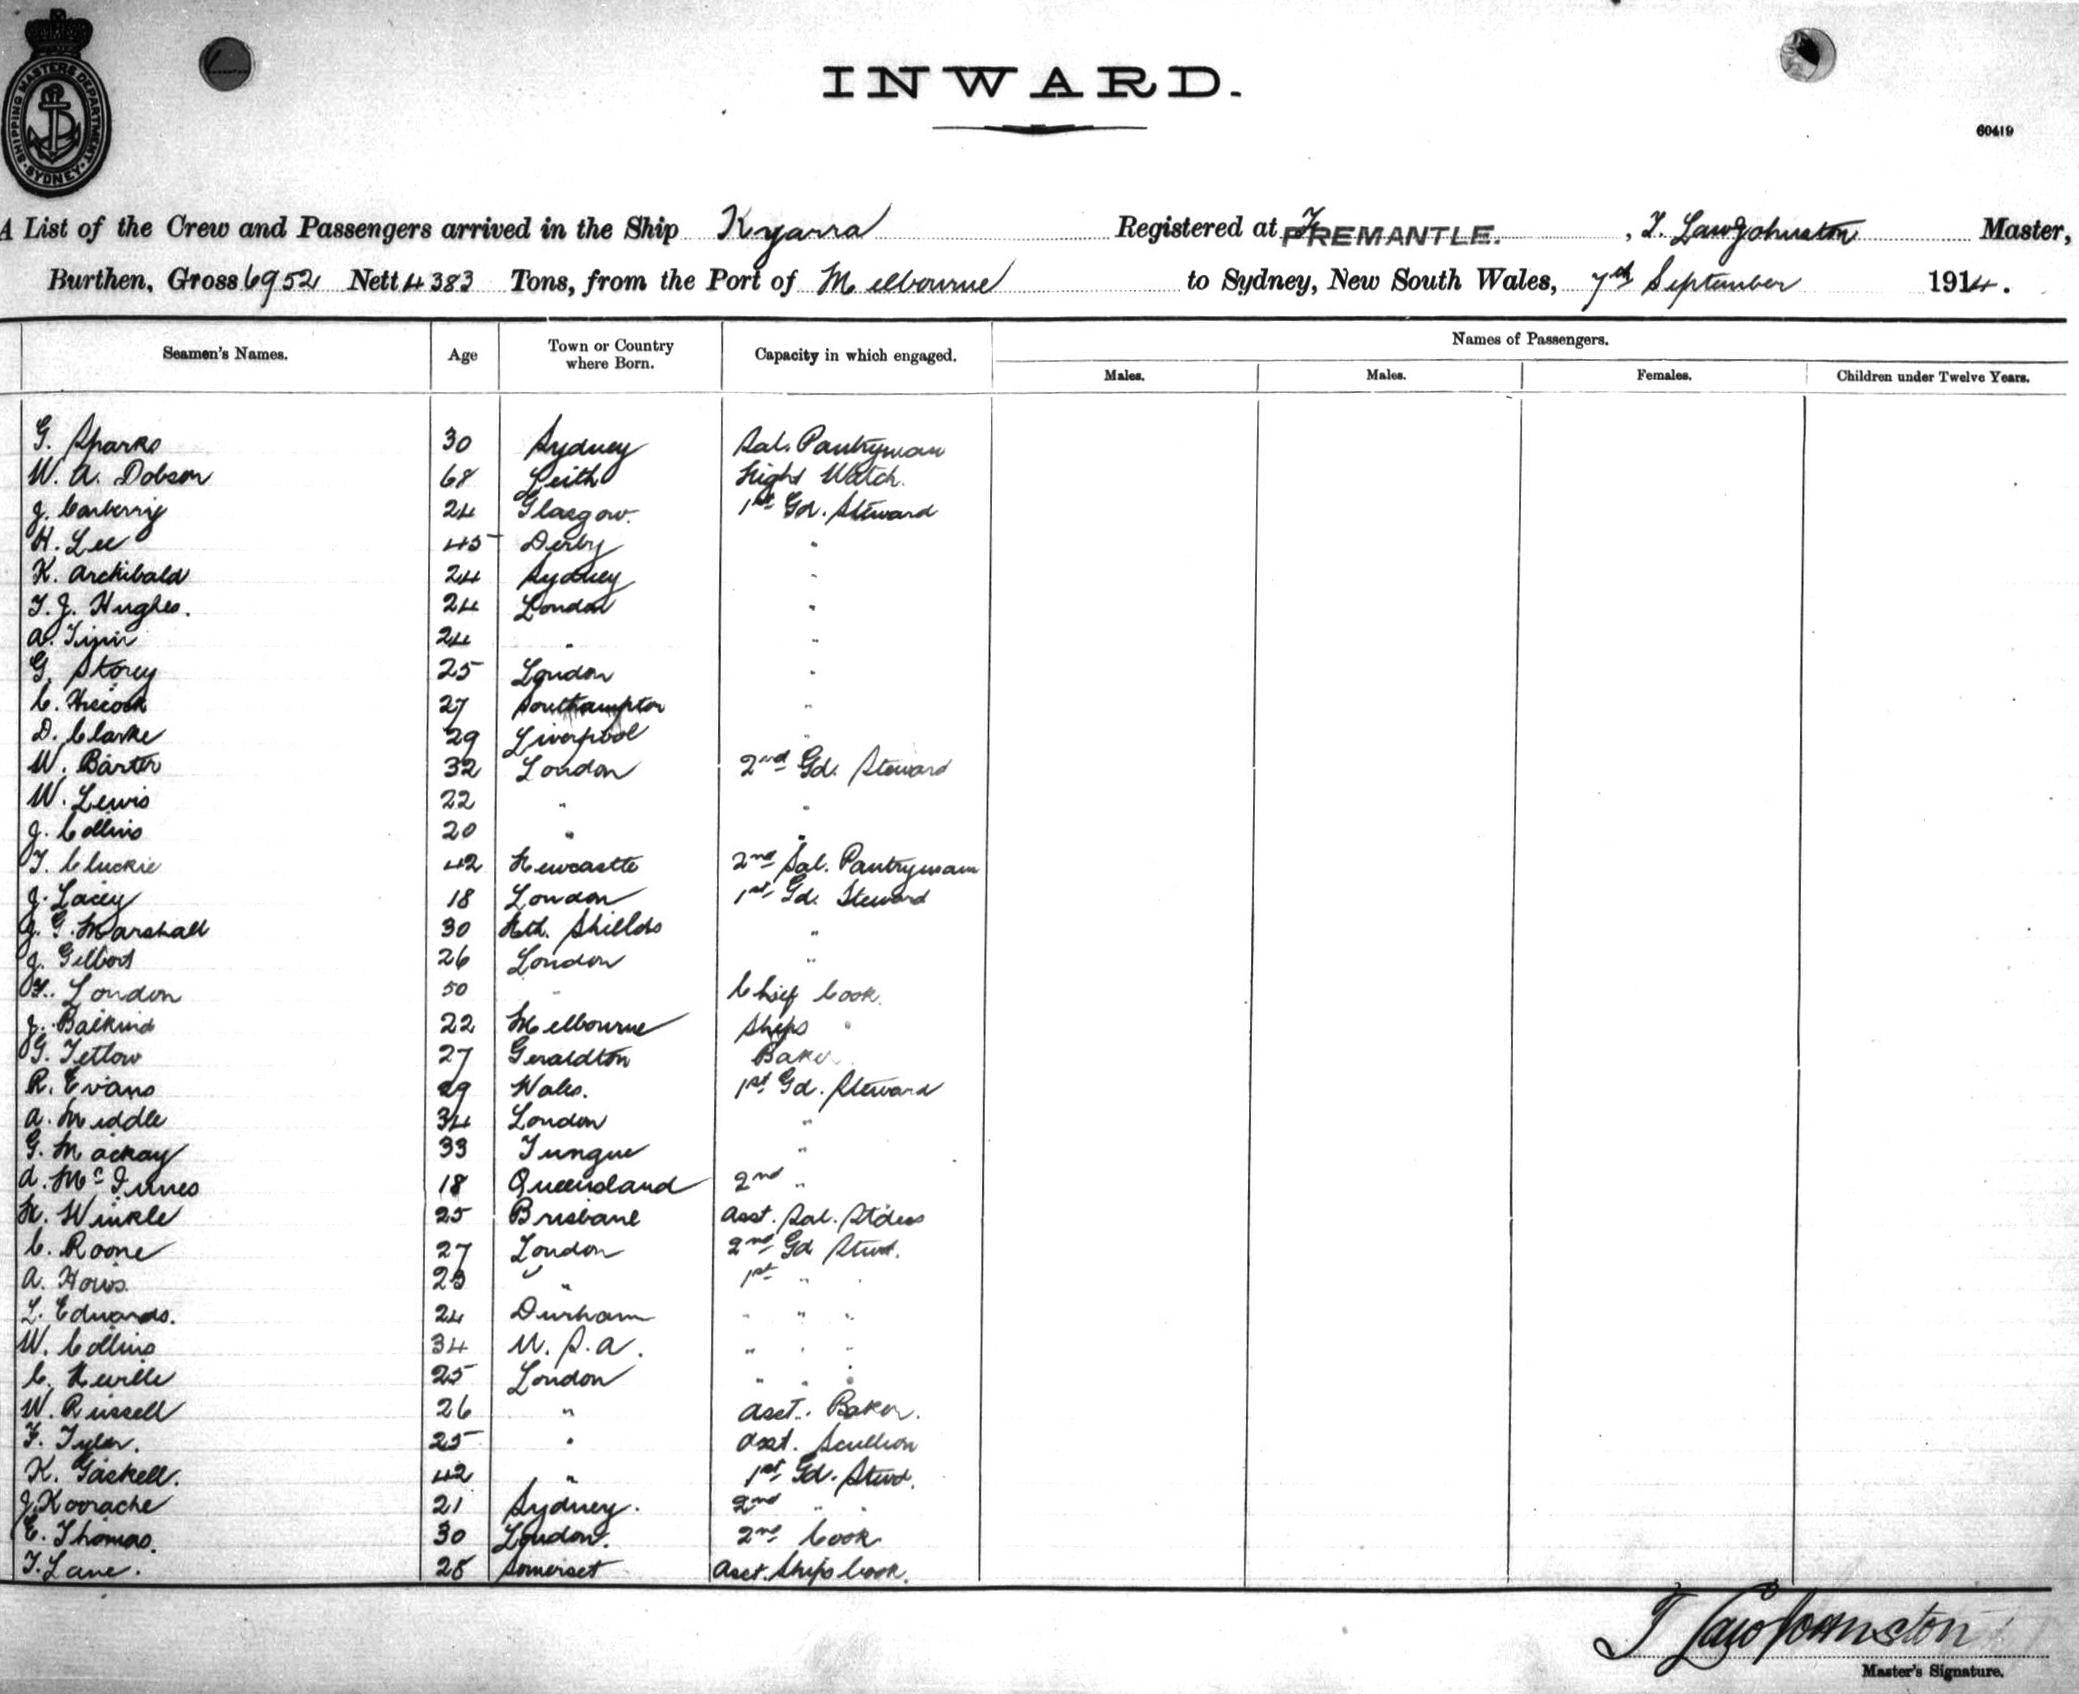 SHIPPING MASTERS DEPARTMENT
SYDNEY
INWARD.
60419
A List of the Crew and Passengers arrived in the Ship Kyarra Registered at FREMANTLE. , T. Law Johnston Master,
Burthen, Gross 6952 Nett 4383 Tons, from the Port of Melbourne to Sydney, New South Wales, 7th September 1914.
Seamen's Names. Age Town or Country where Born. Capacity in which engaged. Names of Passengers.
Males. Males. Females. Children under Twelve Years.
G. Sparks 30 Sydney Sal. Pantryman
W. A. Dobson 68 Leith Night Watch.
J. Carberry 24 Glasgow. 1st Gd. Steward
H. Lee 45 Derby "
K. Archibald 24 Sydney "
T. J. Hughes. 24 London "
A. 24 " "
G. Storey 25 London "
C. 27 Southampton "
D. Clarke 29 Liverpool "
W. Barter 32 London 2nd Gd. Steward
W. Lewis 22 " "
J. Collins 20 " "
T. Cluckie 42 Newcastle 2nd Sal. Pantryman
J. Lacey 18 London 1st Gd. Steward
J. G. Marshall 30 Nth. Shields "
J. Gilbert 26 London "
London 50 " Chief Cook.
J. 22 Melbourne Ships "
G. Tetlow 27 Geraldton Baker
R. Evans 29 Wales. 1st Gd. Steward
A. Middle 34 London "
G. Mackay 33 Tungue "
A. McInnes 18 Queensland 2nd "
Winkle 25 Brisbane Asst. Sal. Stdess
C. Roone 27 London 2nd Gd Stwd.
A. " 1st " "
L. Edwards. 24 Durham " " "
W. Collins 34 U.S.A. " " "
C. Neville 25 London " " "
W. Russell 26 " Asst. Baker.
F. Tyler. 25 " Asst. Scullion
K. Gaskell. 42 " 1st Gd. Stwd.
J. Koorache 21 Sydney. 2nd " "
E. Thomas. 30 London. 2nd Cook
T. Lane. 28 Somerset Asst. Ships Cook.
T Law Johnston
Master's Signature.